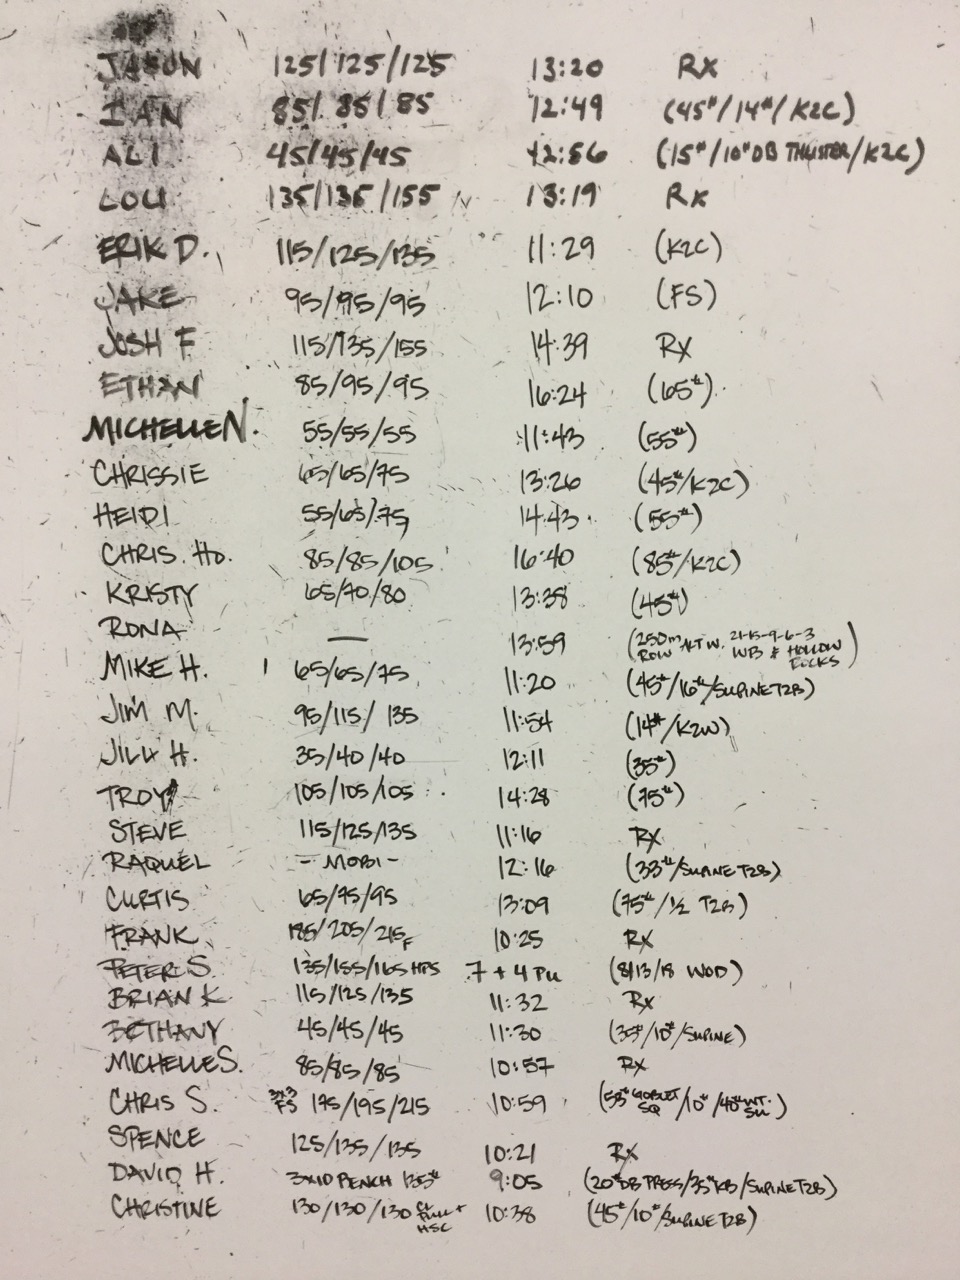 JASON 125/125/125 13:20 RX
IAN 85/85/85 12:49 (45#/14#/K2C)
ALI 45/45/45 12:56 (15#/10# DB THRUSTER/K2C)
LOU 135/135/155 13:19 RX
ERIK D. 115/125/135 11:29 (K2C)
JAKE 95/95/95 12:10 (FS)
JOSH F 115/135/155 14:39 RX
ETHAN 85/95/95 16:24 (65#)
MICHELLE N. 55/55/55 11:43 (55#)
CHRISSIE 65/65/75 13:26 (45#/K2C)
HEIDI 55/65/75 14:43 (55#)
CHRIS. HO. 85/85/105 16:40 (85#/K2C)
KRISTY 65/70/80 13:38 (45#)
RONA — 13:59 (250m ROW ALT W. 21-15-9-6-3 WB & HOLLOW ROCKS)
MIKE H. 65/65/75 11:20 (45#/16#/SUPINE T2B)
JIM M. 95/115/135 11:54 (14#/K2W)
JILL H. 35/40/40 12:11 (35#)
TROY 105/105/105 14:28 (75#)
STEVE 115/125/135 11:16 RX
RAQUEL - MOBI - 12:16 (33#/SUPINE T2B)
CURTIS 65/75/95 13:09 (75#/1/2 T2B)
FRANK 185/205/215F 10:25 RX
PETER S. 135/155/165 HPS 7 + 4 PU (8/13/18 WOD)
BRIAN K 115/125/135 11:32 RX
BETHANY 45/45/45 11:30 (35#/10#/SUPINE)
MICHELLE S. 85/85/85 10:57 RX
CHRIS S. 3x3 FS 175/195/215 10:59 (55# GOBLET SQ/10#/40# WT. SU)
SPENCE 125/135/135 10:21 RX
DAVID H. 3X10 BENCH 135# 9:05 (20# DB PRESS/35# KB/SUPINE T2B)
CHRISTINE 130/130/130 + HSC 10:38 (45#/10#/SUPINE T2B)